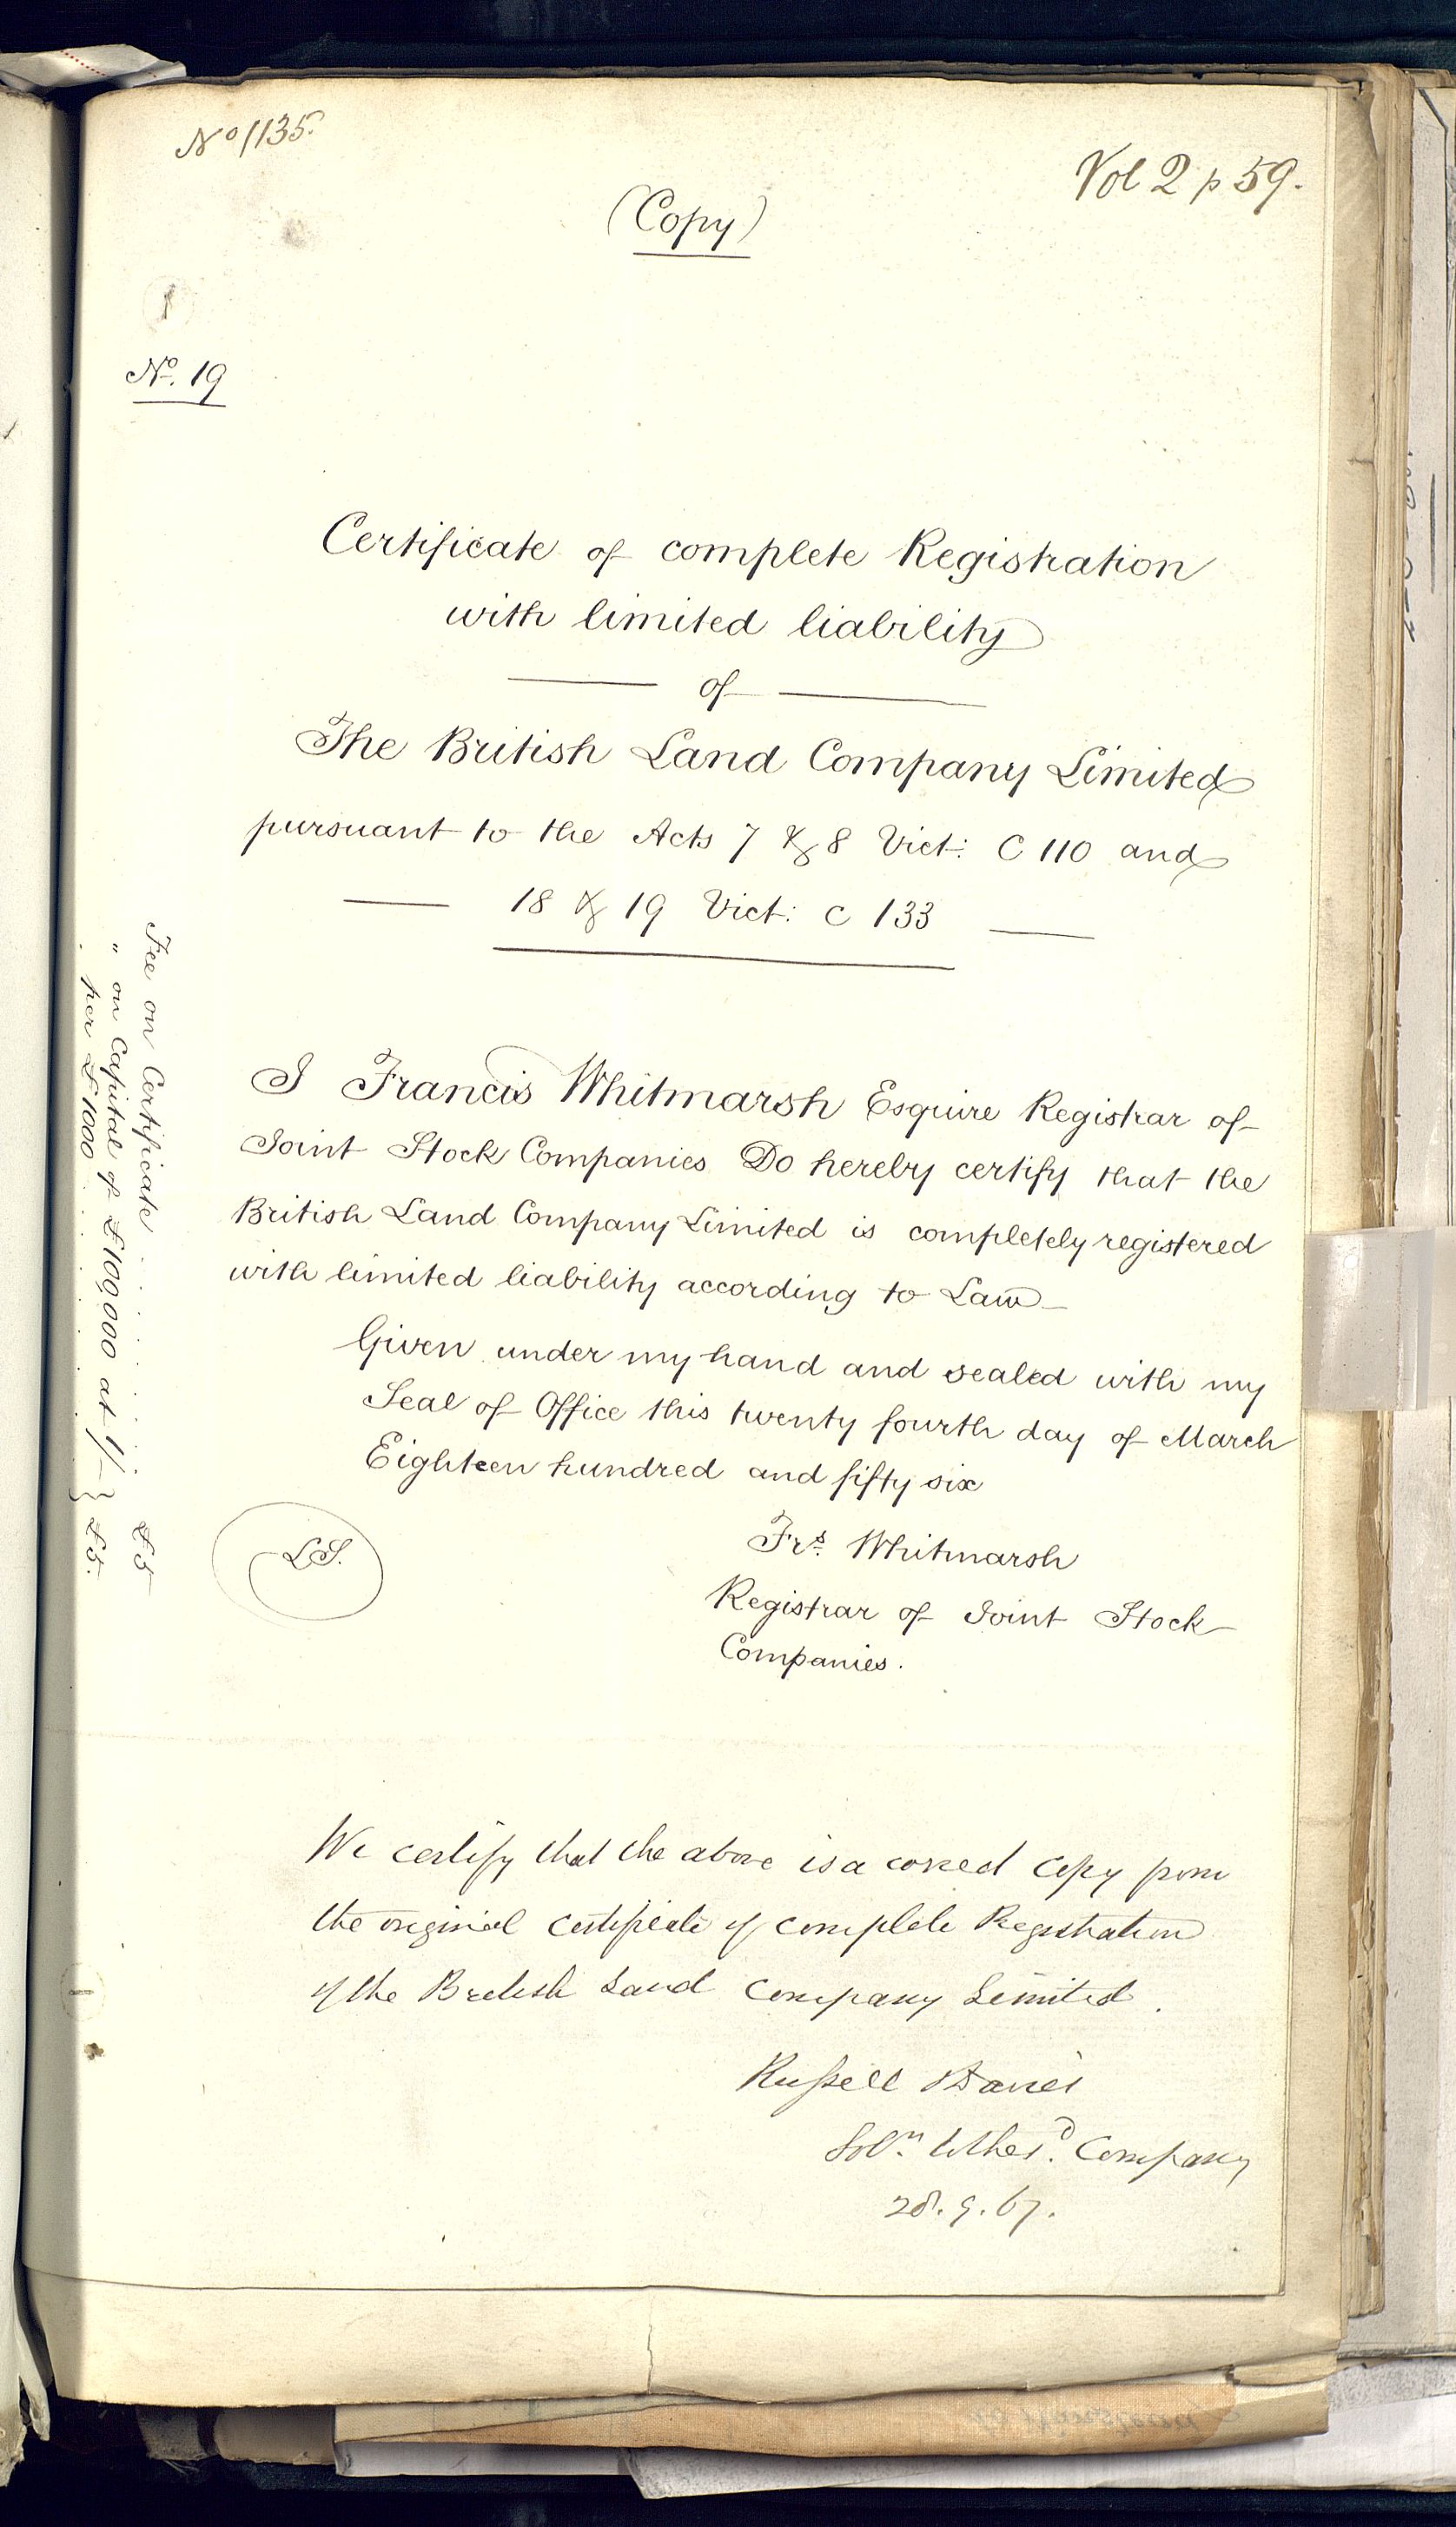 No 1135.
Vol 2 p 59.
(Copy)
1
No. 19
Certificate of complete Registration
with limited liability
of
The British Land Company Limited
pursuant to the Acts 7 & 8 Vict: C 110 and
18 & 19 Vict: C 133
I Francis Whitmarsh Esquire Registrar of
Joint Stock Companies Do hereby certify that the
British Land Company Limited is completely registered
with limited liability according to Law
Given under my hand and sealed with my
Seal of Office this twenty fourth day of March
Eighteen hundred and fifty six
L.S.
Frs. Whitmarsh
Registrar of Joint Stock
Companies.
Fee on Certificate . . . . . . . . £5
" on Capital of £100,000 at 1/- } £5.
per £1000 . . . . . .
We certify that the above is a correct copy from
the original certificate of complete Registration
of the British Land Company Limited.
Russell Davies
Solrs. to the sd. Company
28. 9. 67.